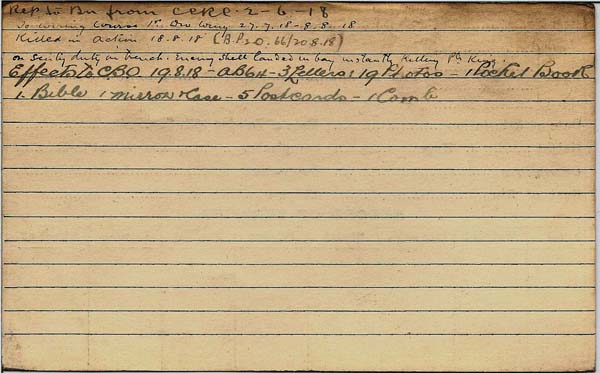 Rep to Bn from CCRC. 2-6-18
Course 1st Div Wing 27.7.18 - 8.8.18
Killed in action 18.8.18 (B.P 2.0. 66/20.8.18)
on sentry duty in trench. Enemy shell landed in bay instantly killing Pte King
Effects to CBO 19.8.18 - AB64 - 3 Letters : 19 Photos - 1 Pocket Book
1 Bible 1 mirror & Case - 5 Postcards - 1 Comb